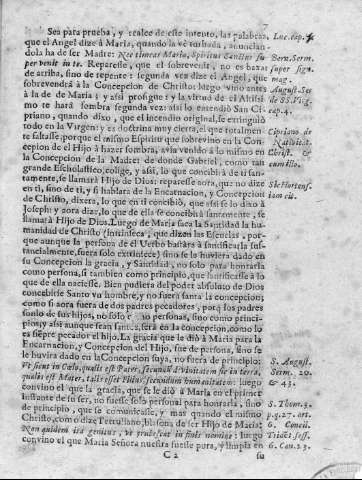 Sea para prueba, y realce de este intento, las palabras, Luc. cap. 1
que el Angel dize à Maria, quando la vè turbada, anuncian-
dola ha de ser Madre: Nec timeas Maria, Spiritus Sanctus su Bern. Serm.
per veniet in te. Reparese, que el sobrevenir, no es baxar super sign.
de arriba, sino de repente: segunda vez dize el Angel, que mag.
sobrevendrà à la Concepcion de Christo: luego vino antes August. Ser
à la de Maria: y assi prosigue: y la virtud de el Altissi de SS. Virg.
mo te harà sombra segunda vez: assi lo entendiò San Ci- cap. 4.
priano, quando dixo, que el incendio original, se extinguiò
todo en la Virgen: y es doctrina muy cierta, el que totalmen Cipriano de
te faltasse, porque el mismo Espiritu que sobrevino en la Con Nativit.
cepcion de el Hijo à hazer sombra, avia venido à lo mismo en Christ. &
la Concepcion de la Madre: de donde Gabriel, como tan
grande Escholastico, colige, y assi, lo que concibirà de ti san-
tamente, se llamarà Hijo de Dios: reparesse aora, que no dize
en ti, sino de ti, y si hablara de la Encarnacion, y Concepcion
de Christo, dixera, lo que en ti concibiò, que assi se lo dixo à
Joseph: y aora dize, lo que de ella se concibirà santamente, se
llamarà Hijo de Dios. Luego de Maria saca la Santidad la hu-
manidad de Christo (intrinseca, que dizen las Escuelas, por-
que aunque la persona de el Verbo bastara à santificarla sus-
tancialmente, fuera solo extrinsece) sino se le huviera dado en
su Concepcion la gracia, y Santidad, no solo para honrarla
como persona, si tambien como principio, que santificasse à lo
que de ella naciesse. Bien pudiera del poder absoluto de Dios
concebirse Santo vn hombre, y no fuera santa la concepcion;
como si aora fuera de dos padres pecadores, porq los padres
son lo de sus hijos, no solo personas, sino como princi-
pios, y assi aunque sean santos, serà en la concepcion, como lo
es siepre pecador el hijo. La gracia que le diò à Maria para la
Encarnacion, y Concepcion del Hijo, fue de persona, sino se
le huvira dado en la Concepcion suya, no fuera de principio:
Vt sicut in Cœlo, qualis est Pater, secundū divinitatem sic in terra, S. August.
qualis est Mater, talis esset Filius, secundum humanitatem: luego Serm. 20.
convino el que la gracia, que se le diò à Maria en el primer & 43.
instante de su ser, no fuesse solo personal para honrarla, sino S. Thom. 3.
de principio, que se comunicasse, y mas quando el mismo p. q. 27. art.
Christo, como dize Tertuliano, blasona de ser Hijo de Maria: 6. Concil.
Non quidem ita genitus, vt erubescat in filij nomine: luego Trid. sess.
convino el que Maria Señora nuestra fuesse pura, y limpia en 6. Can. 23.
C 2 su